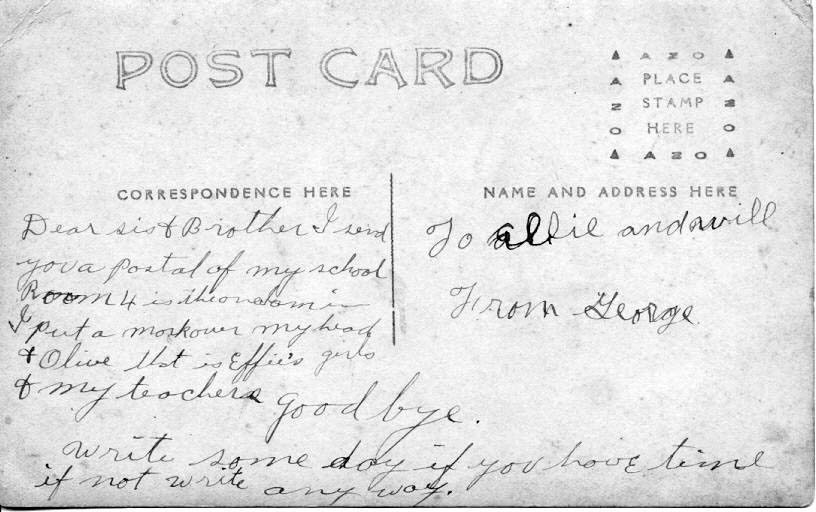 POST CARD
▲ AZO ▲
A PLACE A
Z STAMP Z
O HERE O
▲ AZO ▲
CORRESPONDENCE HERE
NAME AND ADDRESS HERE
Dear sis & Brother I send
you a Postal of my school
Room 4 is the one I am in
I put a mark over my head
& Olive that is Effie's girls
& my teachers good bye.
write some day if you have time
if not write any way.
To allie and will
From George